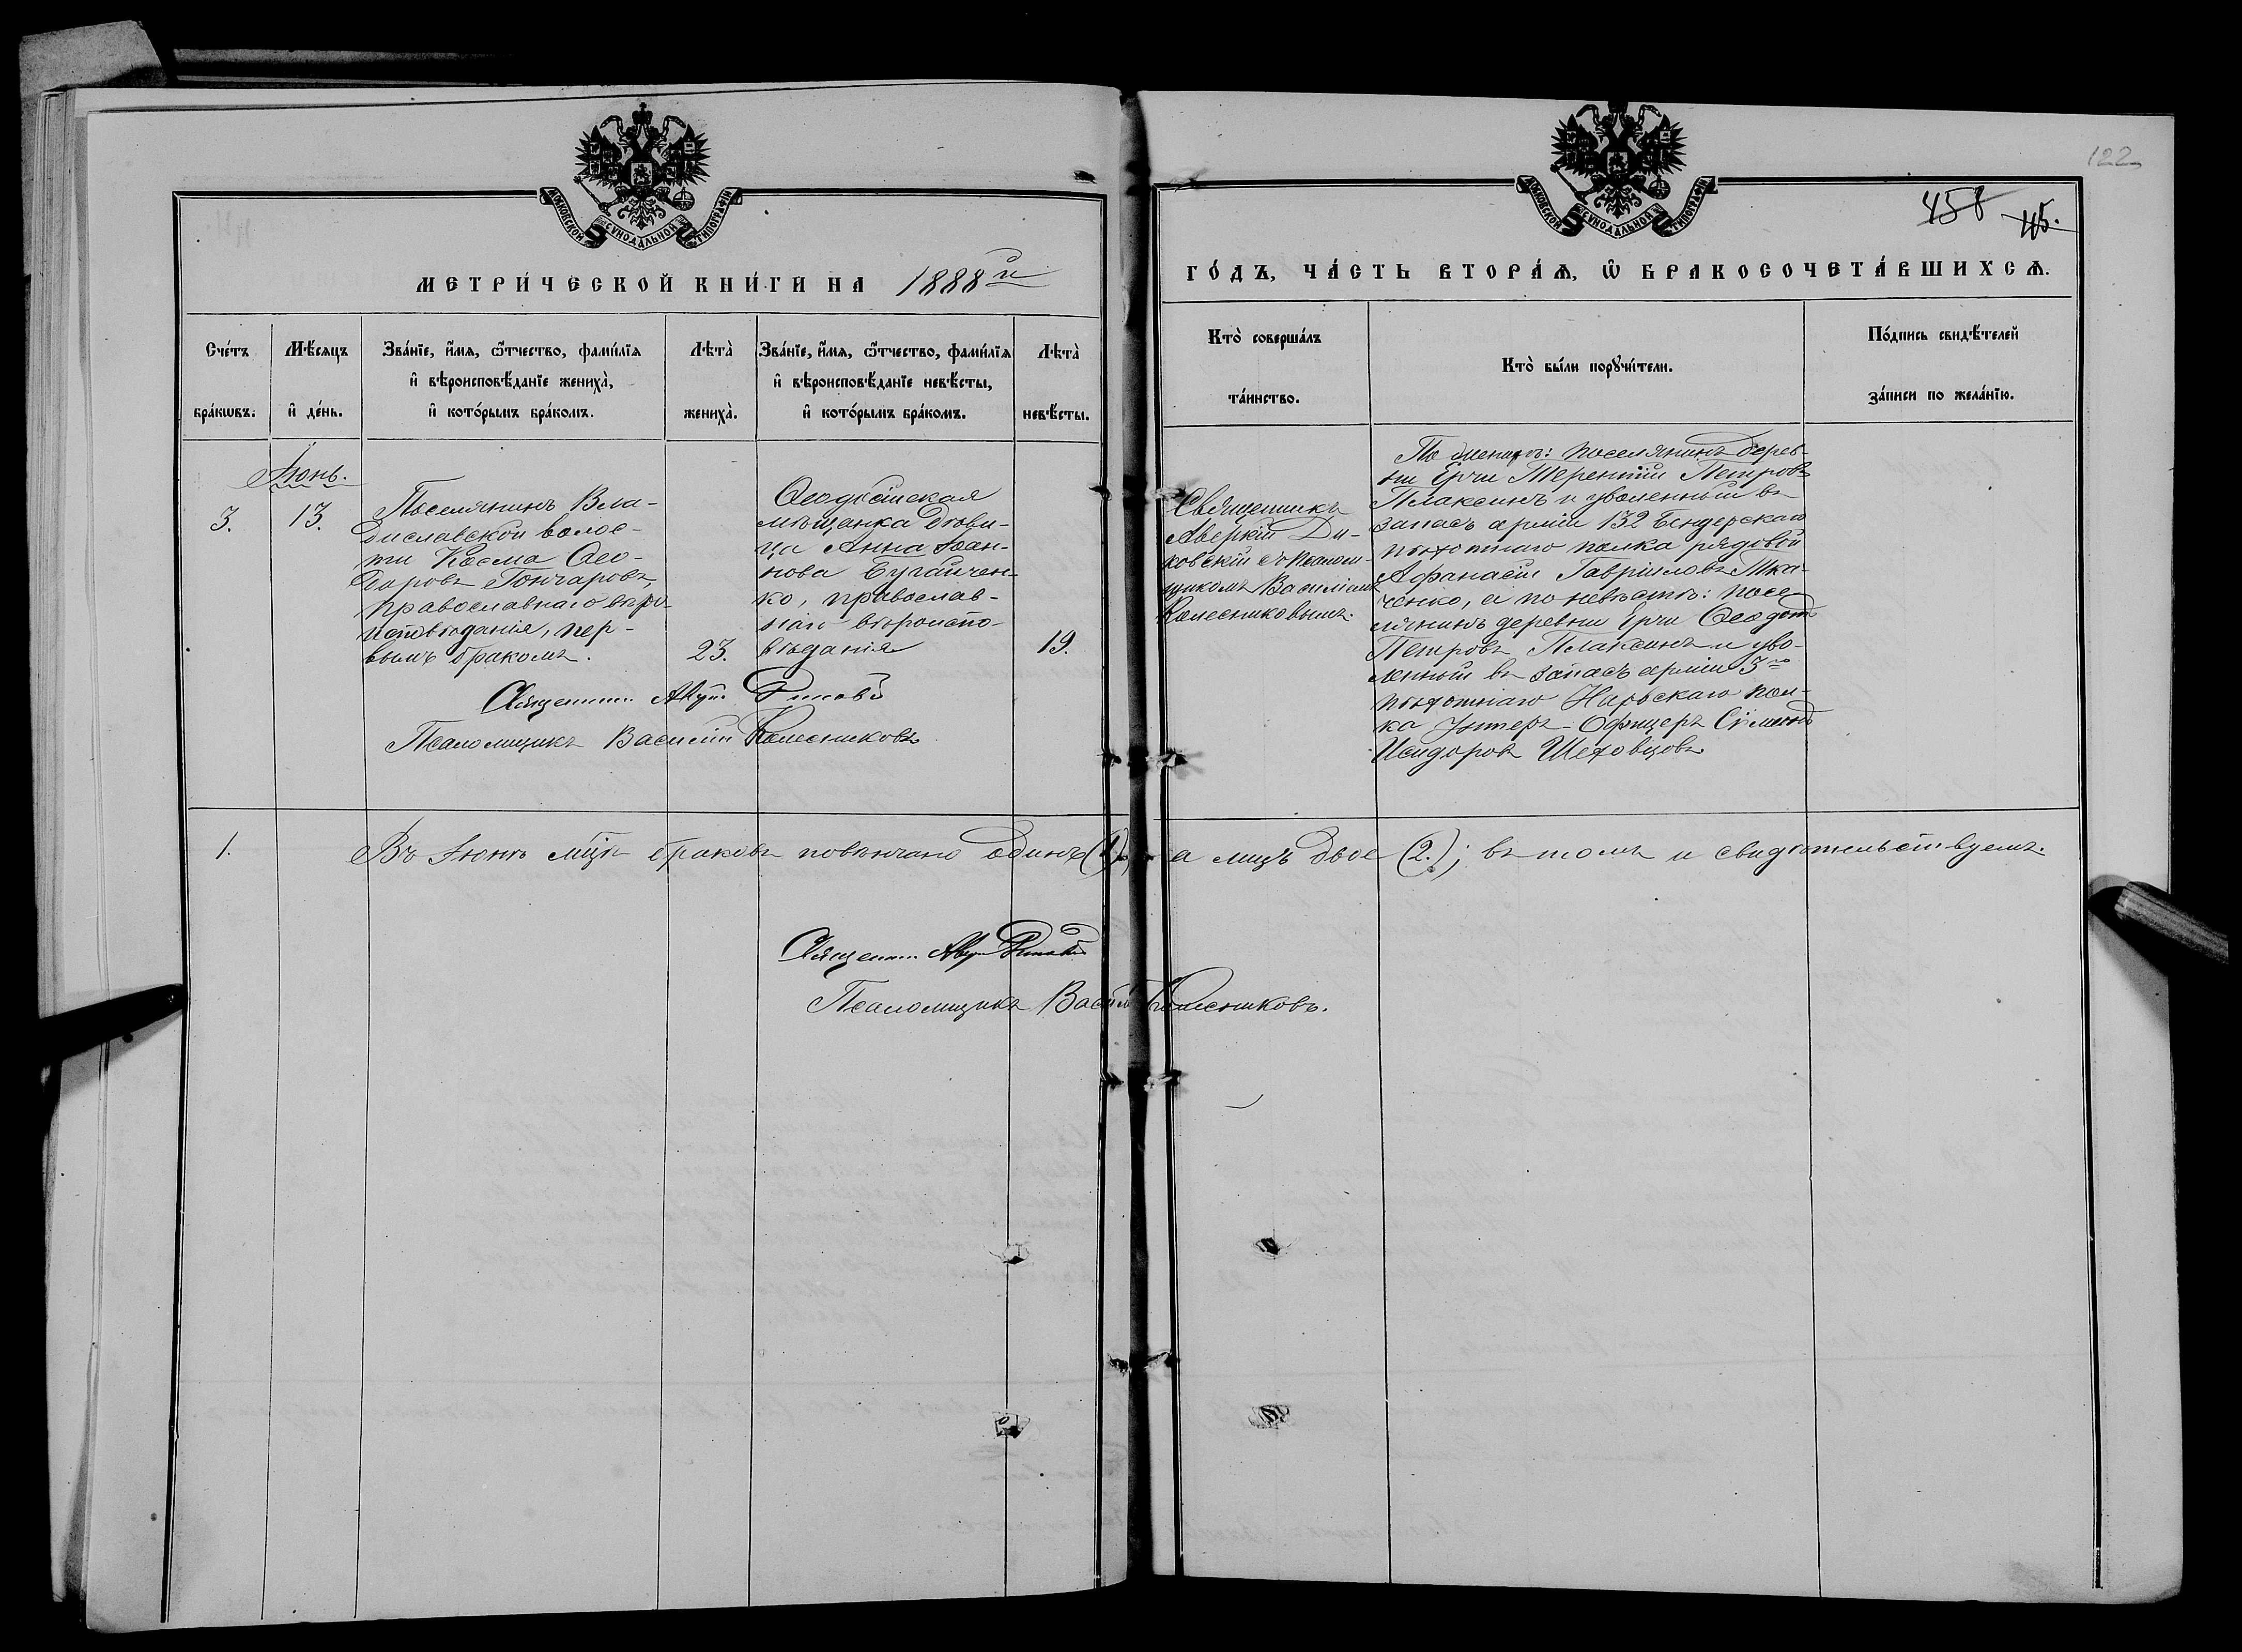 122
458 45.
МОСКОВСКОЙ СѴНОДАЛЬНОЙ ТИПОГРАФІИ
МОСКОВСКОЙ СѴНОДАЛЬНОЙ ТИПОГРАФІИ
МЕТРИ́ЧЕСКОЙ КНИ́ГИ НА 1888й
ГО́ДЪ, ЧА́СТЬ ВТОРА́Ѧ, Ѽ БРАКОСОЧЕТА́ВШИХСѦ.
Сче́тъ
бра́кѡвъ.
Мѣ́сяцъ
и҆ де́нь.
Зва́нїе, и҆́мѧ, ѻ҆́тчество, фами́лїѧ
и҆ вѣроисповѣ́данїе жениха̀,
и҆ кото́рымъ бра́комъ.
Лѣта̀
жениха̀.
Зва́нїе, и҆́мѧ, ѻ҆́тчество, фами́лїѧ
и҆ вѣроисповѣ́данїе невѣ́сты,
и҆ кото́рымъ бра́комъ.
Лѣта̀
невѣ́сты.
Кто̀ соверша́лъ
та́инство.
Кто̀ бы́ли порꙋчи́тели.
По́дпись свидѣ́телей
за́писи по жела́нїю.
Іюнь.
3.
13.
Поселянинъ Вла-
диславской волос-
ти Косма Ѳео-
доровъ Гончаровъ,
православнаго вѣро
исповѣданія, пер-
вымъ бракомъ.
23.
Ѳеодосійская
мѣщанка дѣви-
ца Анна Іоан-
нова Бугайчен-
ко, православ-
наго вѣроиспо-
вѣданія
19.
Священникъ
Аверкій Ди-
ковскій съ Псалом-
щикомъ Василіемъ
Колесниковымъ.
По женихѣ: поселянинъ дерев-
ни Ерчи Терентій Петровъ
Плаксинъ и уволенный въ
запасъ арміи 132 Бендерскаго
пѣхотнаго полка рядовой
Афанасій Гавріиловъ Тка-
ченко, а по невѣстѣ: посе-
лянинъ деревни Ерчи Ѳеодотъ
Петровъ Плаксинъ и уво-
ленный въ запасъ арміи 3го
пѣхотнаго Нарвскаго пол-
ка Унтеръ-Офицеръ Сѷмеонъ
Исидоровъ Шеховцовъ
Священникъ
Псаломщикъ Василій Колесниковъ
1.
Въ Іюнѣ мцѣ браковъ повѣнчано одинъ (1), а лицъ двое (2.); въ томъ и свидѣтельствуемъ.
Священникъ
Псаломщикъ Василій Колесниковъ.